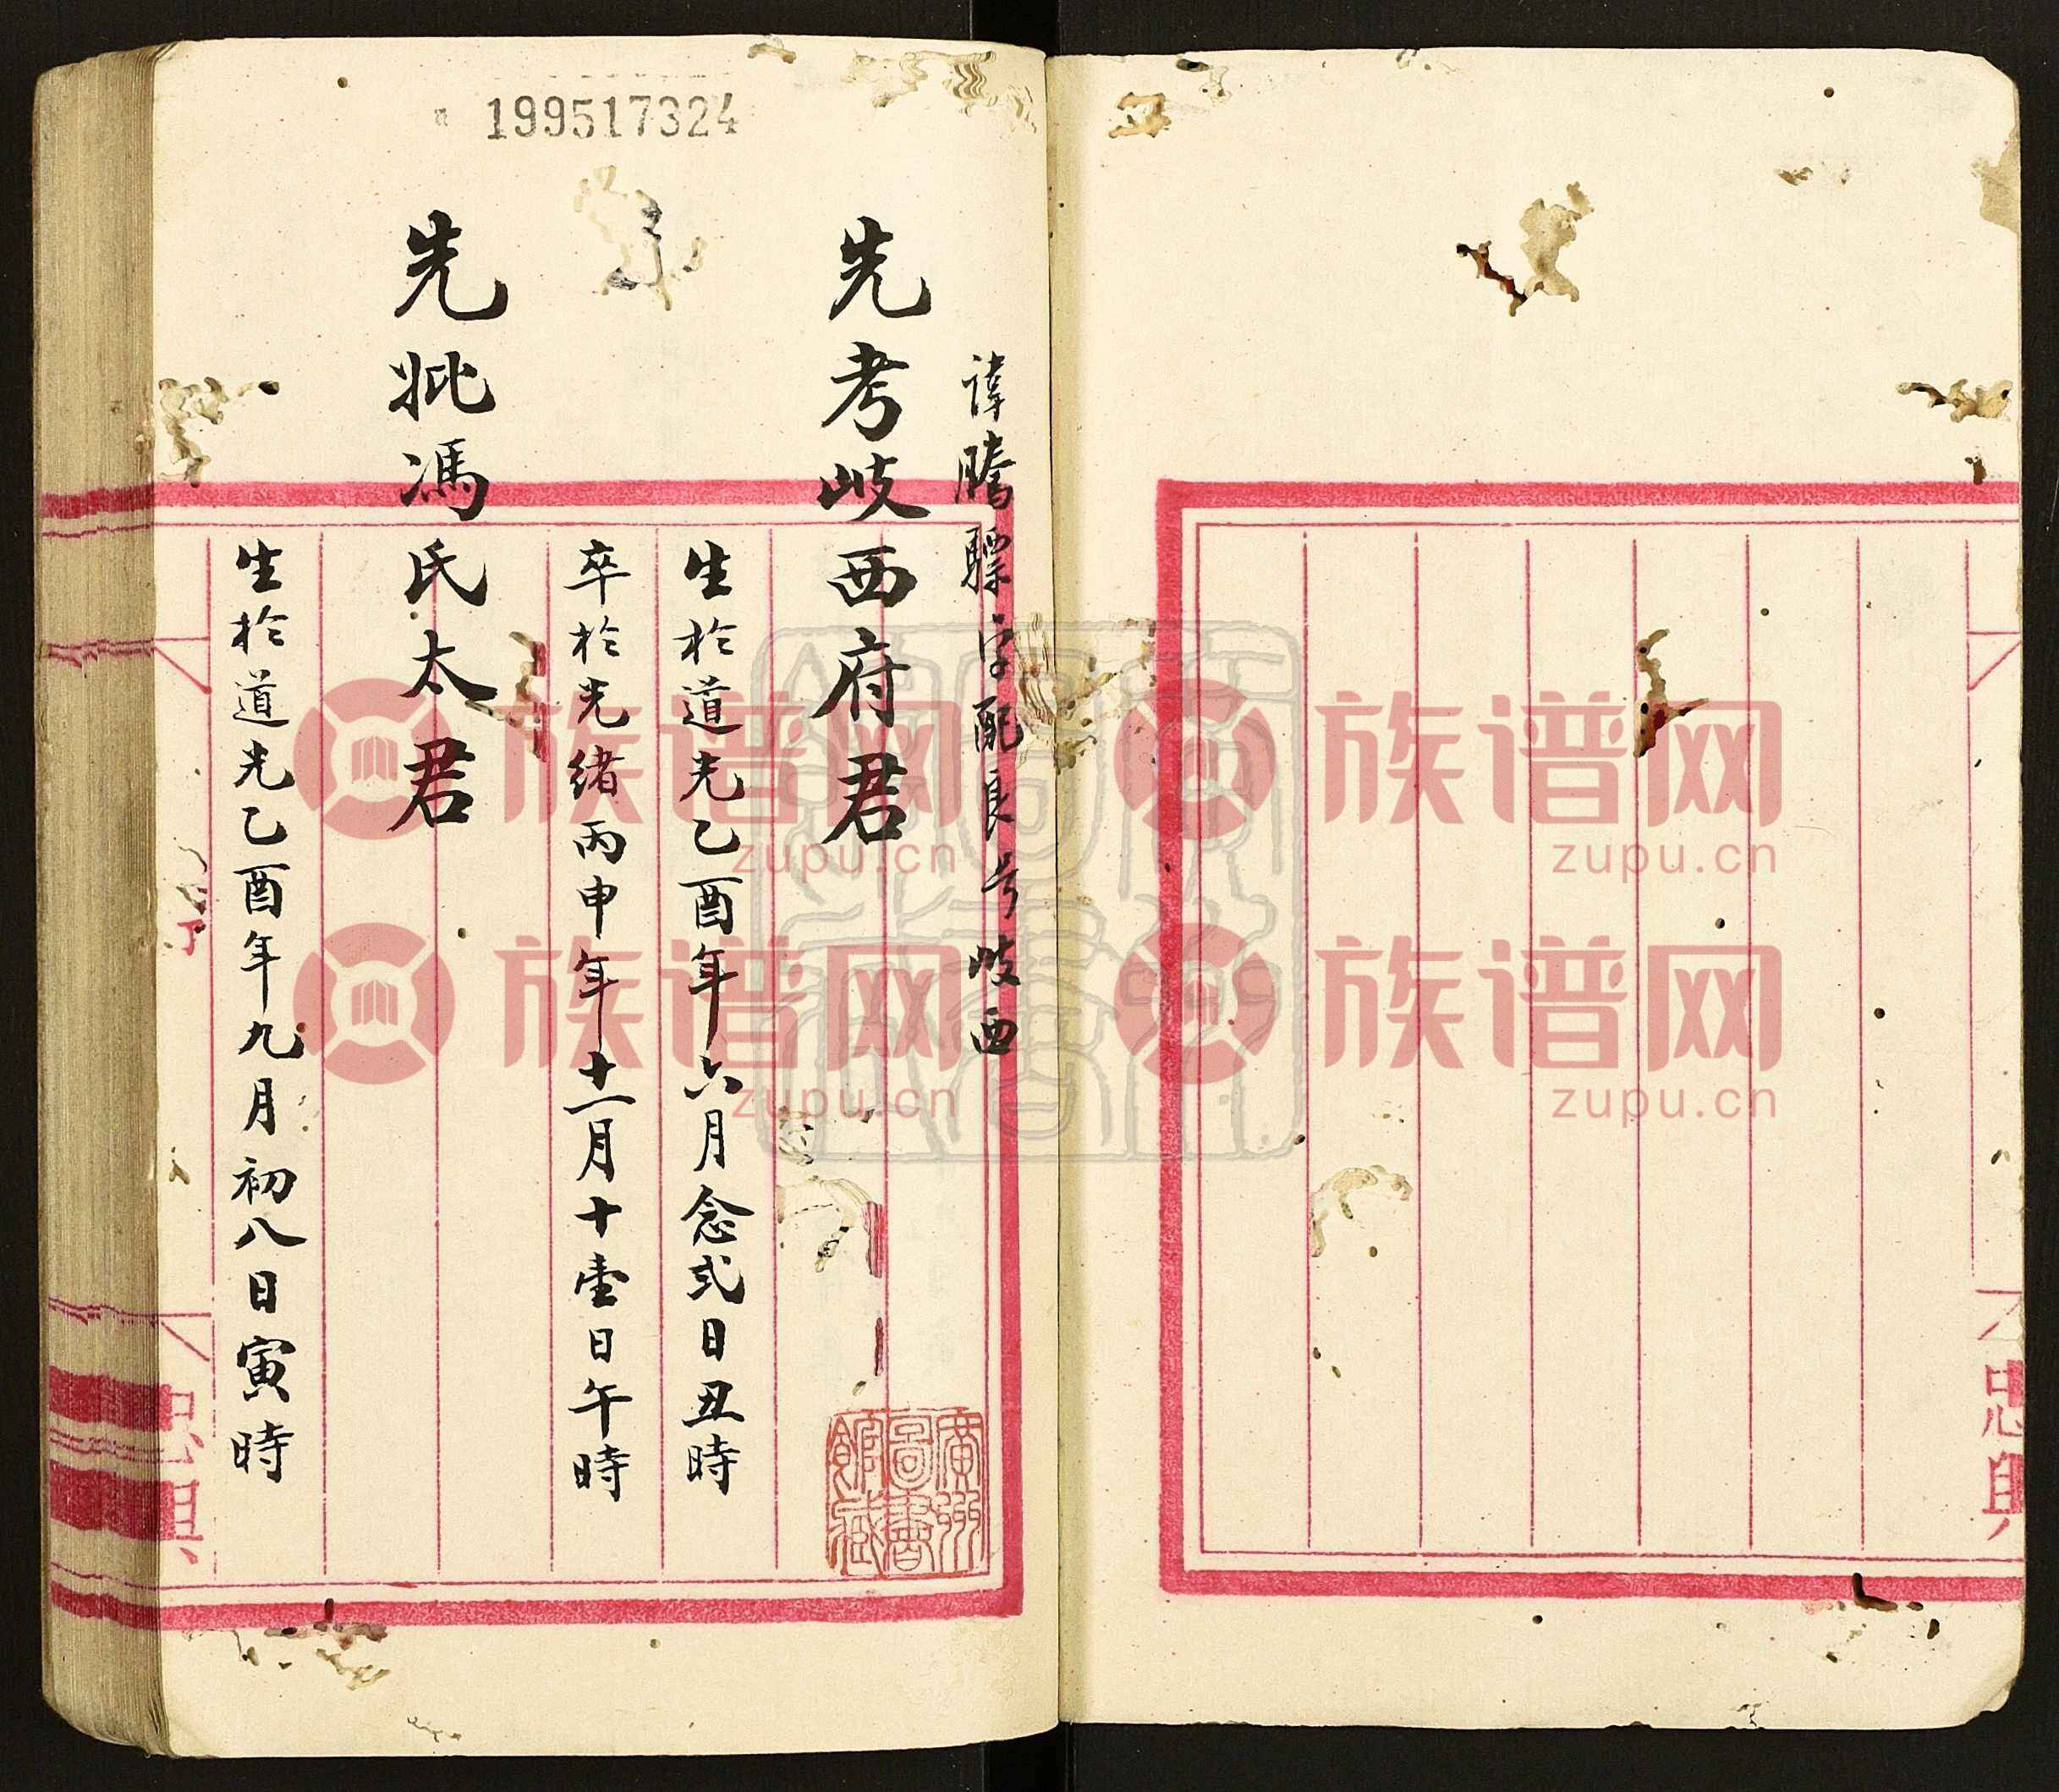 199517324
諱騰驃字配良号岐西
先考岐西府君
生於道光乙酉年六月念弍日丑時
卒於光緒丙申年十一月十壹日午時
先妣馮氏太君
生於道光乙酉年九月初八日寅時
廣州
圖書
館藏
忠興
忠興
族谱网
zupu.cn
族谱网
zupu.cn
族谱网
zupu.cn
族谱网
zupu.cn